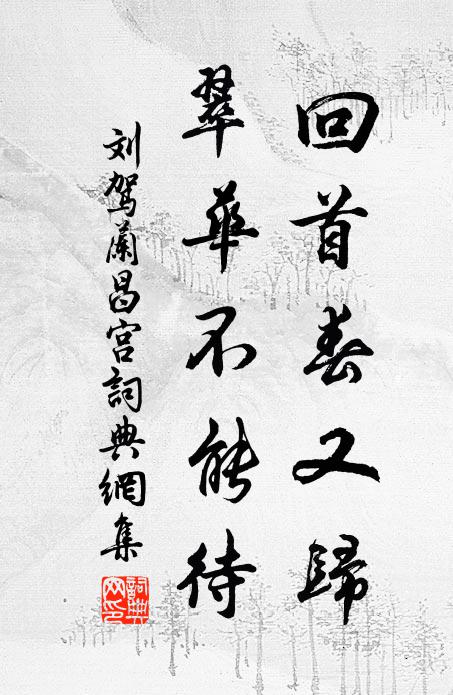 回首春又歸
翠華不能待
刘驾蘭昌宫詞典網集
詞典網印